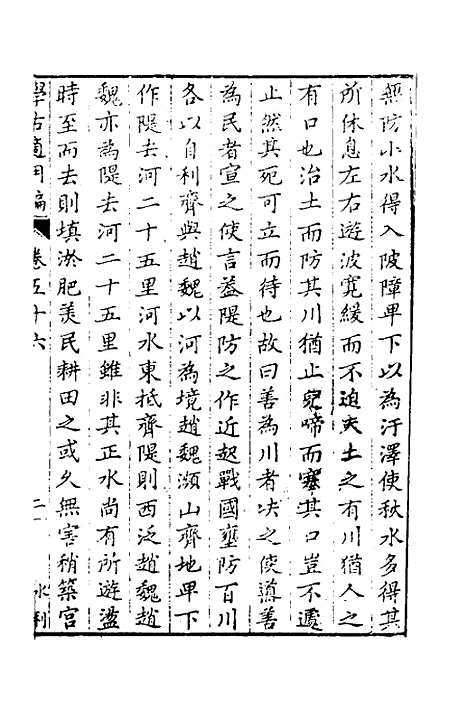 無防小水得入陂障卑下以為汙澤使秋水多得其
所休息左右遊波寛緩而不迫夫土之有川猶人之
有口也治土而防其川猶止兒啼而塞其口豈不遽
止然其死可立而待也故曰善為川者决之使道善
為民者宣之使言蓋隄防之作近起戰國壅防百川
各以自利齊與趙魏以河為境趙魏瀕山齊地卑下
作隄去河二十五里河水東抵齊隄則西泛趙魏趙
魏亦為隄去河二十五里雖非其正水尚有所遊盪
時至而去則填淤肥美民耕田之或久無害稍築宫
學古適用編 卷五十六 二 水利